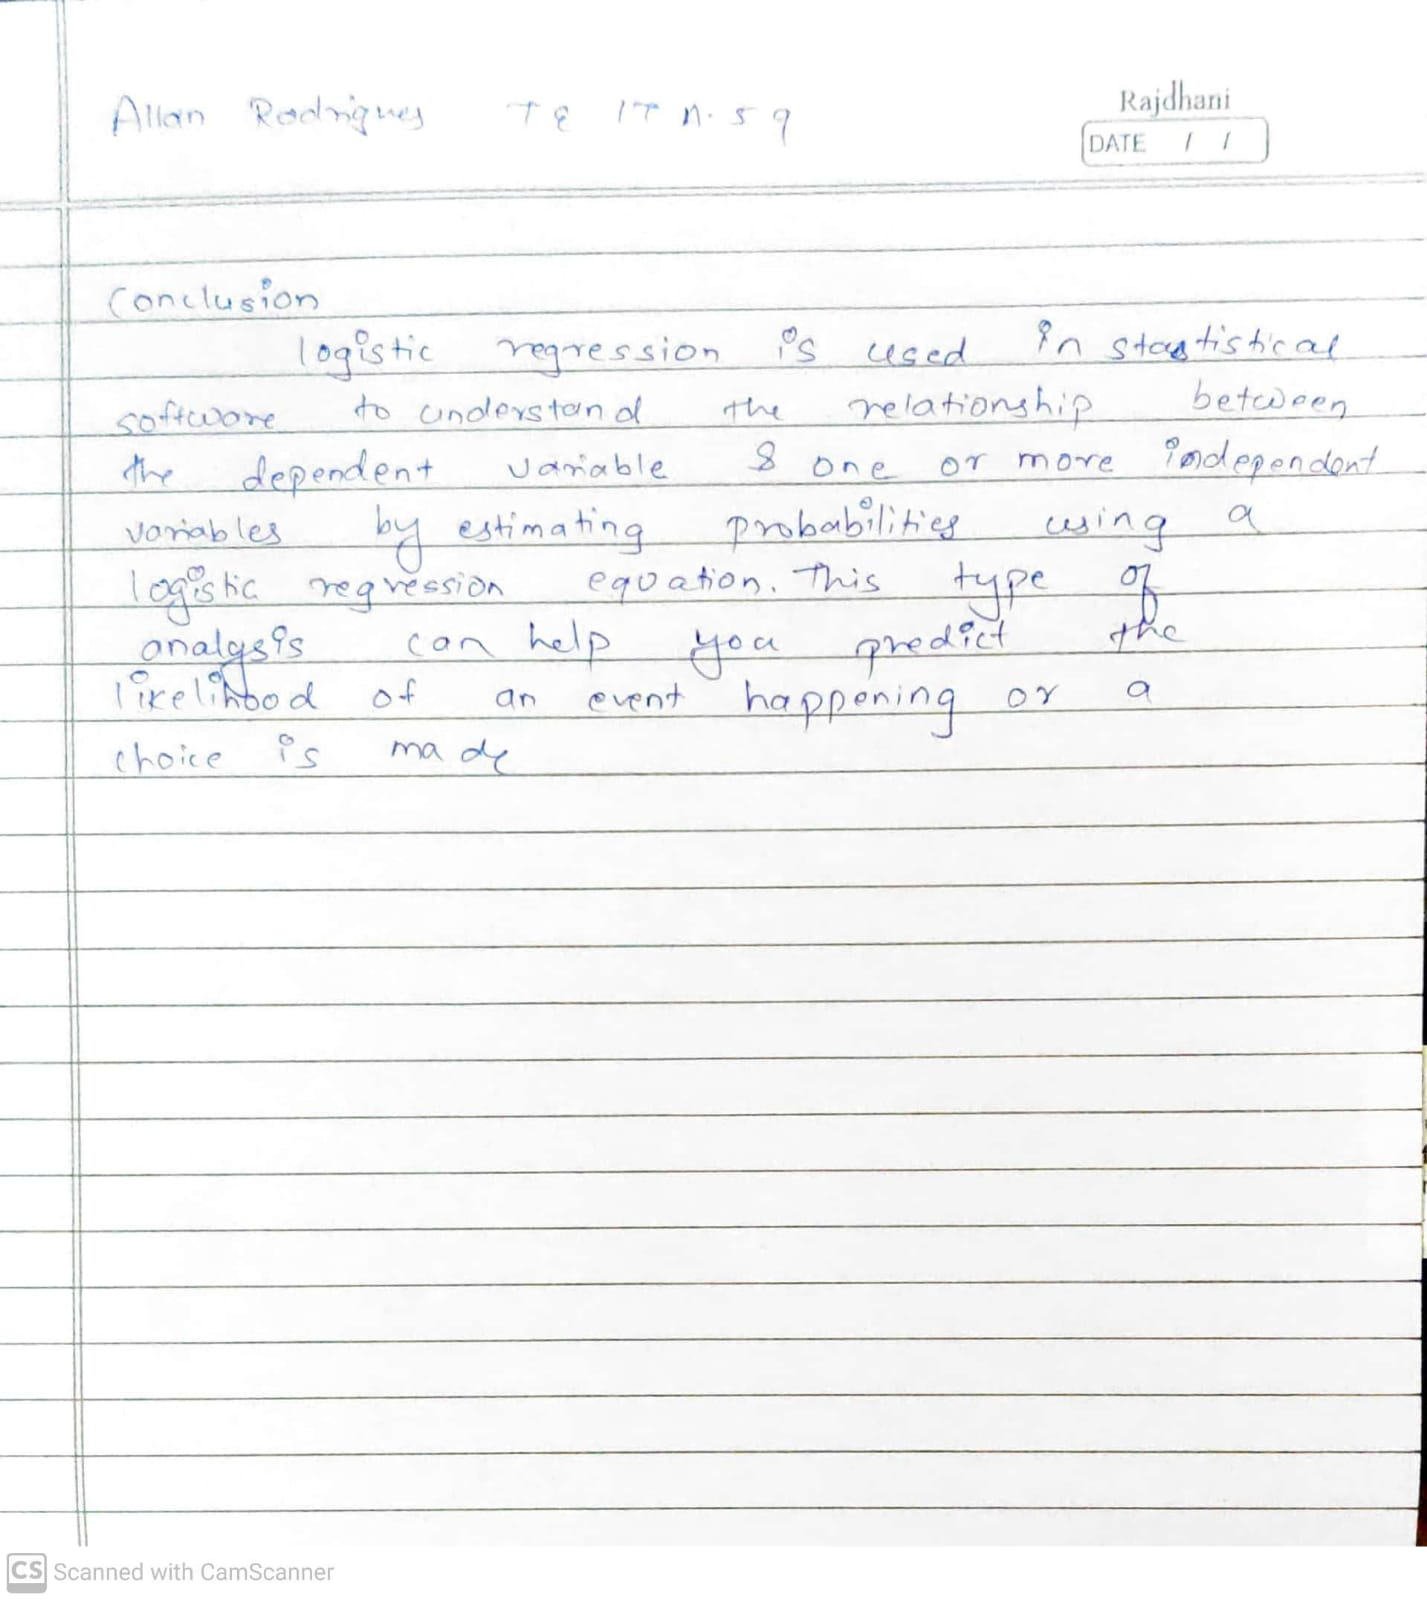 Allan Rodrigues TE IT A. 59
Rajdhani
DATE / /
Conclusion
logistic regression is used in stastistical
software to understand the relationship between
the dependent variable & one or more independent
variables by estimating probabilities using a
logistic regression equation. This type of
analysis can help you predict the
likelihood of an event happening or a
choice is made
CS Scanned with CamScanner